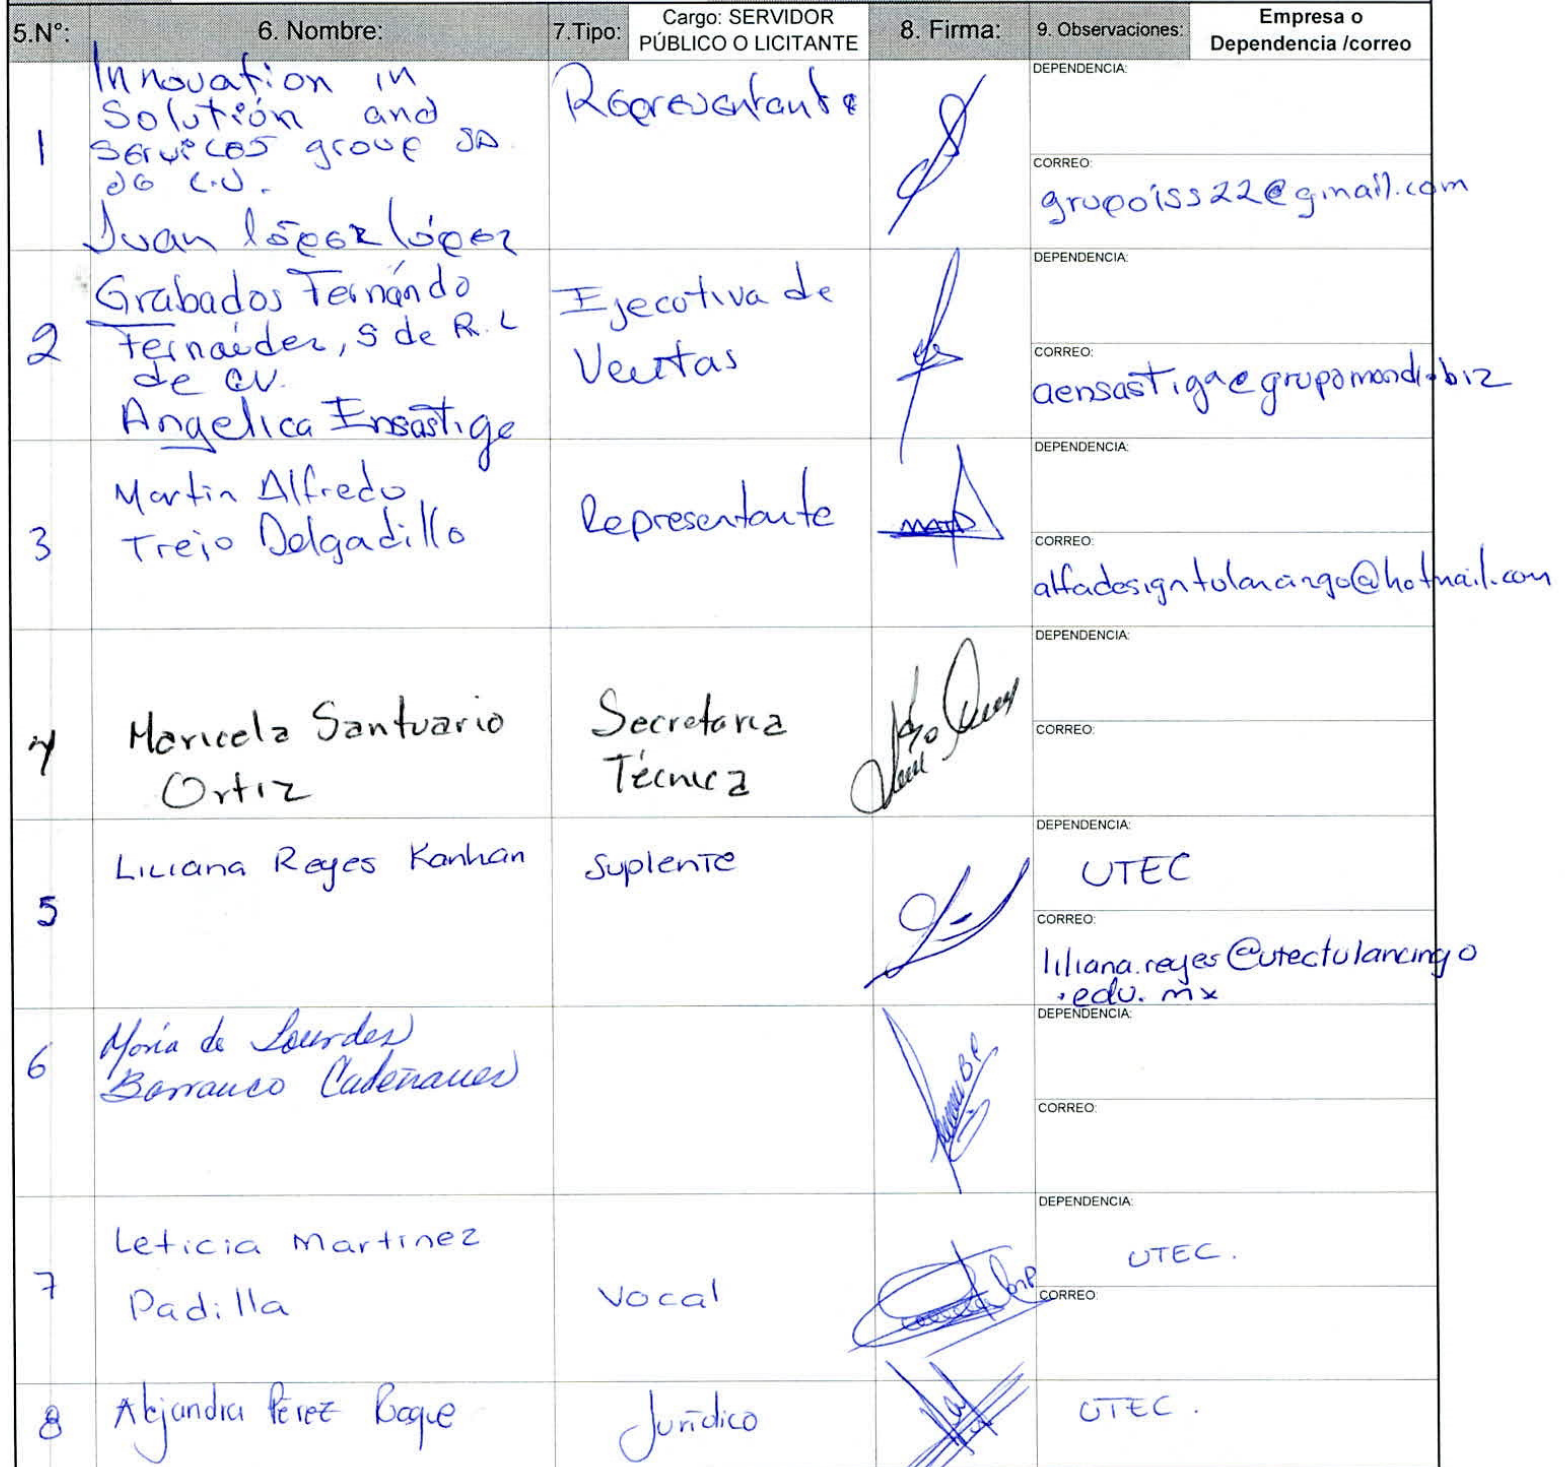 5.N°: 6. Nombre: 7.Tipo: Cargo: SERVIDOR PÚBLICO O LICITANTE 8. Firma: 9. Observaciones: Empresa o Dependencia /correo
1
Innovation in
Solutión and
Services group SA
de C.V.
Juan lópez lópez
Representante
DEPENDENCIA:
CORREO:
grupoiss22@gmail.com
2
Grabados Fernando
Fernández, S de R.L
de CV.
Angelica Ensastige
Ejecutiva de
Ventas
DEPENDENCIA:
CORREO:
3
Martin Alfredo
Trejo Delgadillo
Representante
DEPENDENCIA:
CORREO:
alfadesigntulancingo@hotmail.com
4
Maricela Santuario
Ortiz
Secretaria
Técnica
DEPENDENCIA:
CORREO:
5
Liliana Reyes Kanhan
Suplente
DEPENDENCIA:
UTEC
CORREO:
liliana.reyes@utectulancingo
.edu.mx
6
María de Lourdes
Barranco
DEPENDENCIA:
CORREO:
7
Leticia Martinez
Padilla
Vocal
DEPENDENCIA:
UTEC.
CORREO:
8
Alejandra Pérez
Jurídico
UTEC.